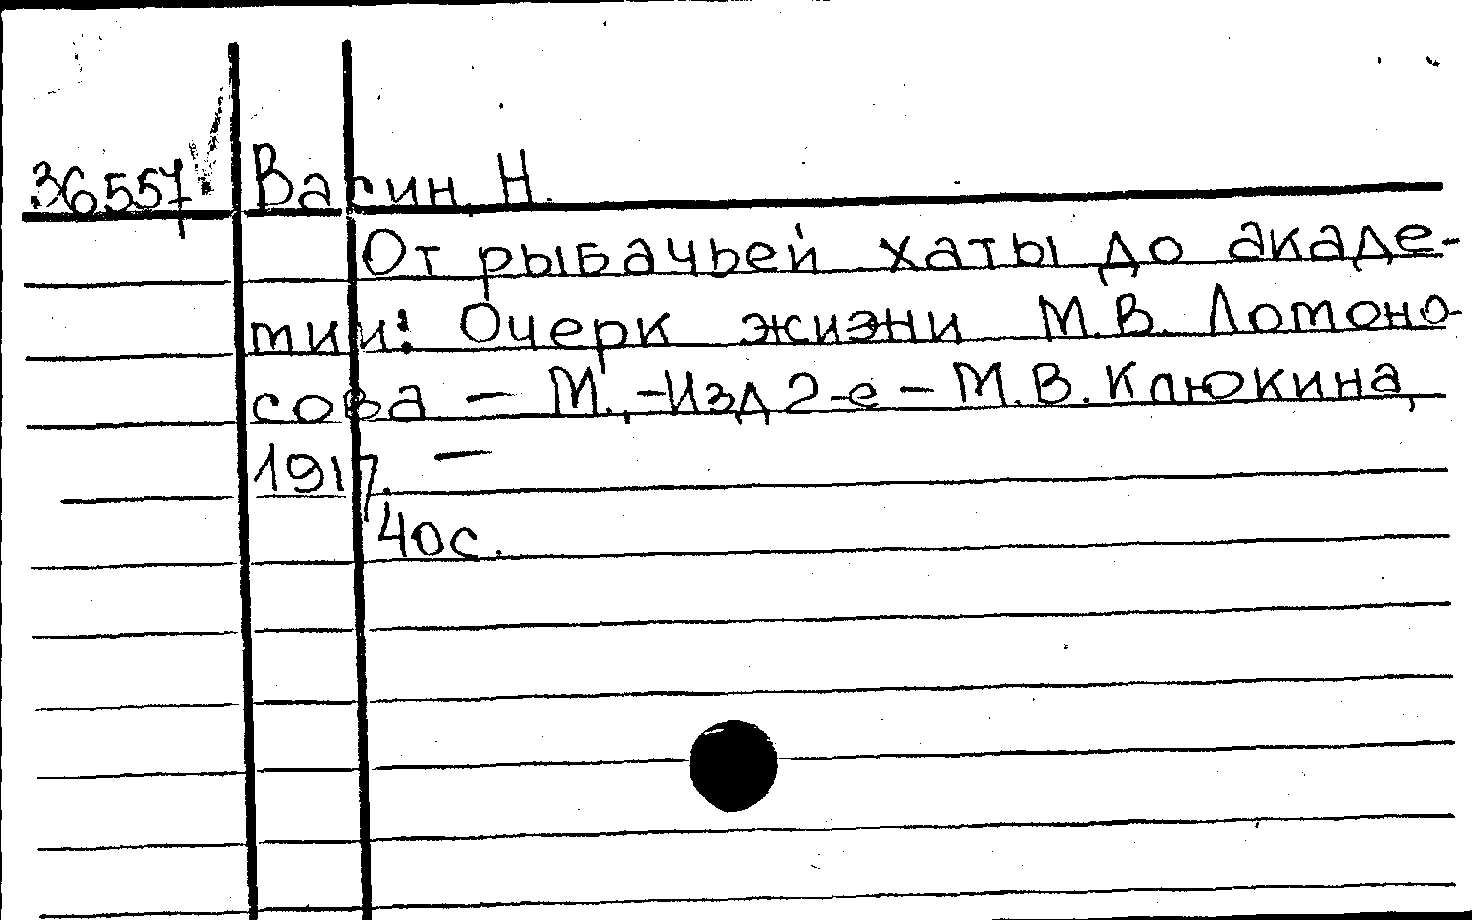 36557 Васин Н.
От рыбачьей хаты до акаде-
мии: Очерк жизни М.В. Ломоно-
сова – М., -Изд 2-е – М.В. Клюкина,
1917. –
40с.